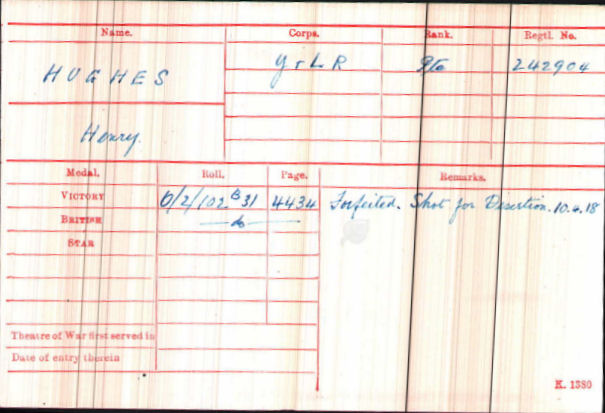 Name. Corps. Rank. Regtl. No.
HUGHES Y & L R Pte 242904
Henry.
Medal. Roll. Page. Remarks.
VICTORY O/2/102 B31 4434 Forfeited. Shot for Desertion. 10.4.18
BRITISH — do —
STAR
Theatre of War first served in
Date of entry therein
K. 1380